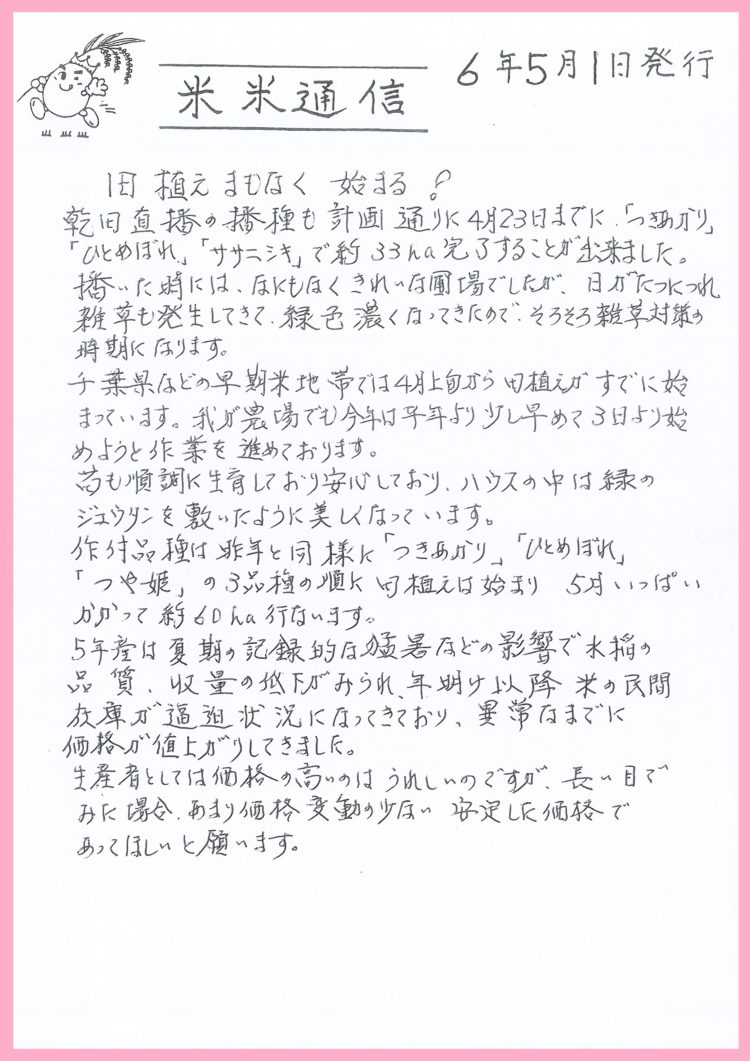 米米通信
6年5月1日発行
田植えまもなく始まる!
乾田直播の播種も計画通りに4月23日までに、「つきあかり」
「ひとめぼれ」「ササニシキ」で約33ha完了することが出来ました。
播いた時には、なにもなくきれいな圃場でしたが、日がたつにつれ
雑草も発生してきて、緑色濃くなってきたので、そろそろ雑草対策の
時期になります。
千葉県などの早期米地帯では4月上旬から田植えがすでに始
まっています。我が農場でも今年は平年より少し早めて3日より始
めようと作業を進めております。
苗も順調に生育しており安心しており、ハウスの中は緑の
ジュウタンを敷いたように美しくなっています。
作付品種は昨年と同様に「つきあかり」「ひとめぼれ」
「つや姫」の3品種の順に田植えは始まり 5月いっぱい
かかって約60ha行ないます。
5年産は夏期の記録的な猛暑などの影響で水稲の
品質、収量の低下がみられ、年明け以降米の民間
在庫が逼迫状況になってきており、異常なまでに
価格が値上がりしてきました。
生産者としては価格の高いのはうれしいのですが、長い目で
みた場合、あまり価格変動の少ない安定した価格で
あってほしいと願います。